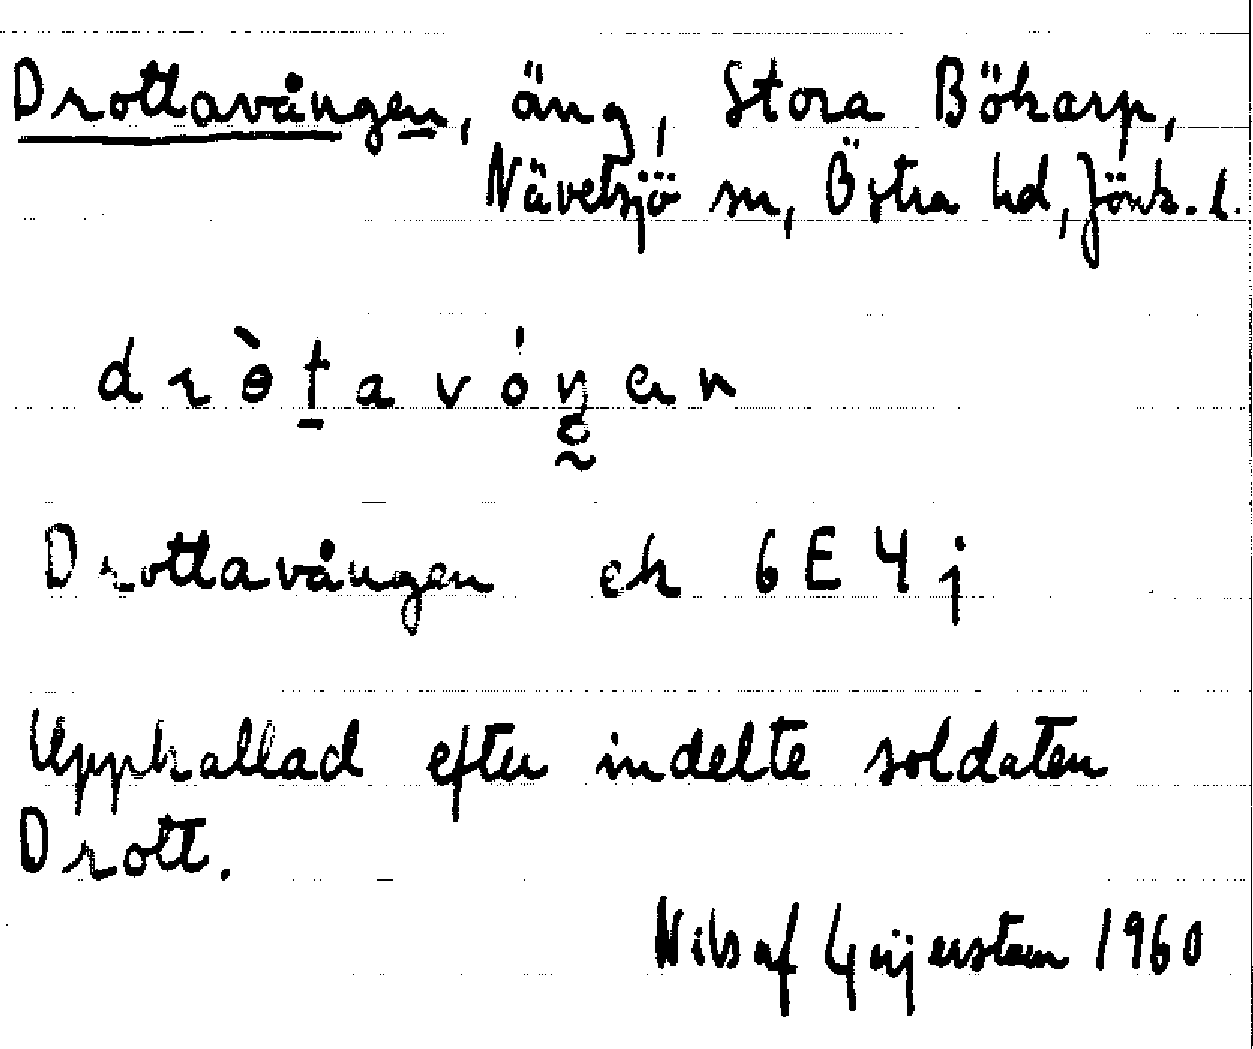 Drottavången, äng, Stora Bökarp,
Nävelsjö sn, Östra hd, Jönk. l.
dròtavóŋen
Drottavången ek 6E4j
Uppkallad efter indelte soldaten
Drott.
Nils af Geijerstam 1960